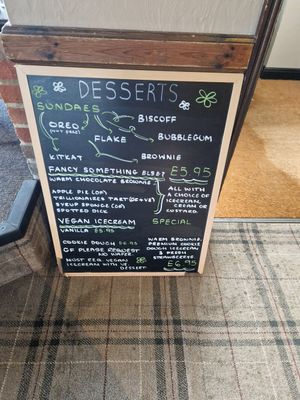 DESSERTS
SUNDAES
BISCOFF
OREO
BUBBLEGUM
FLAKE
KITKAT
BROWNIE
FANCY SOMETHING ELSE? £5.95
WARM CHOCOLATE BROWNIE
APPLE PIE
TRILLIONAIRES TART
SYRUP SPONGE
SPOTTED DICK
ALL WITH
A CHOICE OF
ICECREAM,
CREAM OR
CUSTARD
VEGAN ICECREAM
VANILLA £5.95
COOKIE DOUGH £6.95
GF PLEASE REQUEST
NO WAFER
MOST REG. VEGAN
ICECREAM WITH
DESSERT
SPECIAL
WARM BROWNIE,
PREMIUM COOKIE
DOUGH ICECREAM
& FRESH
STRAWBERRIES
£6.95